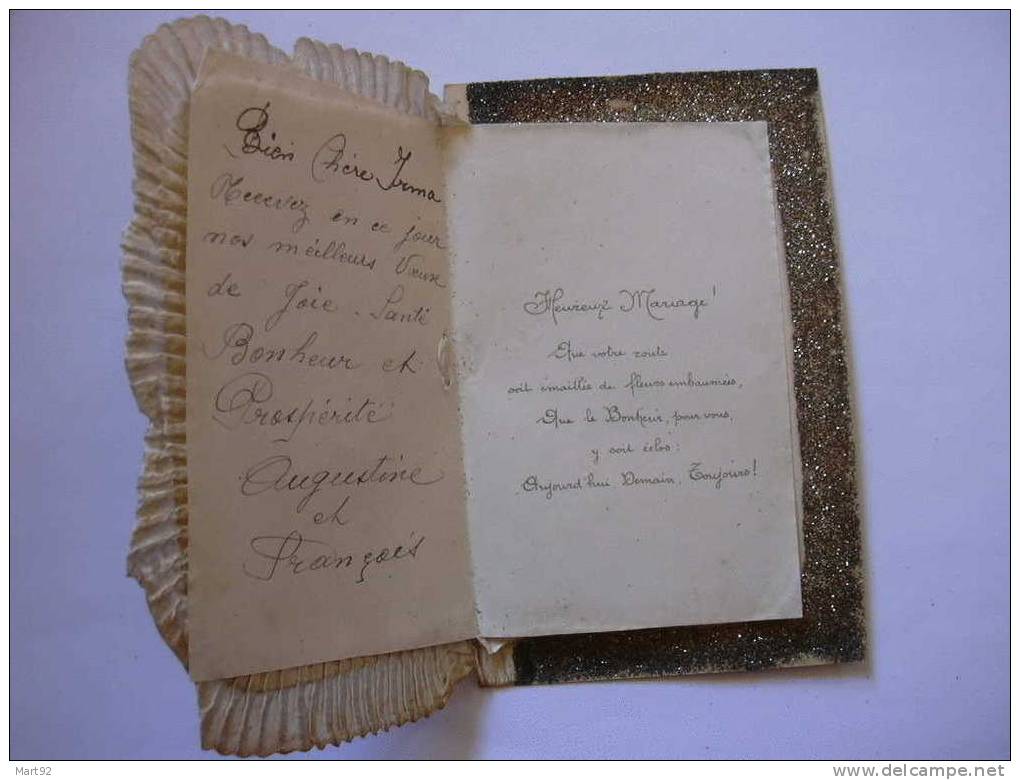 Bien Chère Irma
Recevez en ce jour
nos méilleurs Vœux
de Joie - Santé
Bonheur et
Prospérité
Augustine
et
François
Heureux Mariage!
Que votre route
soit émaillée de fleurs embaumées,
Que le Bonheur, pour vous,
y soit éclos:
Aujourd'hui Demain, Toujours!
Mart92
delcampe.net